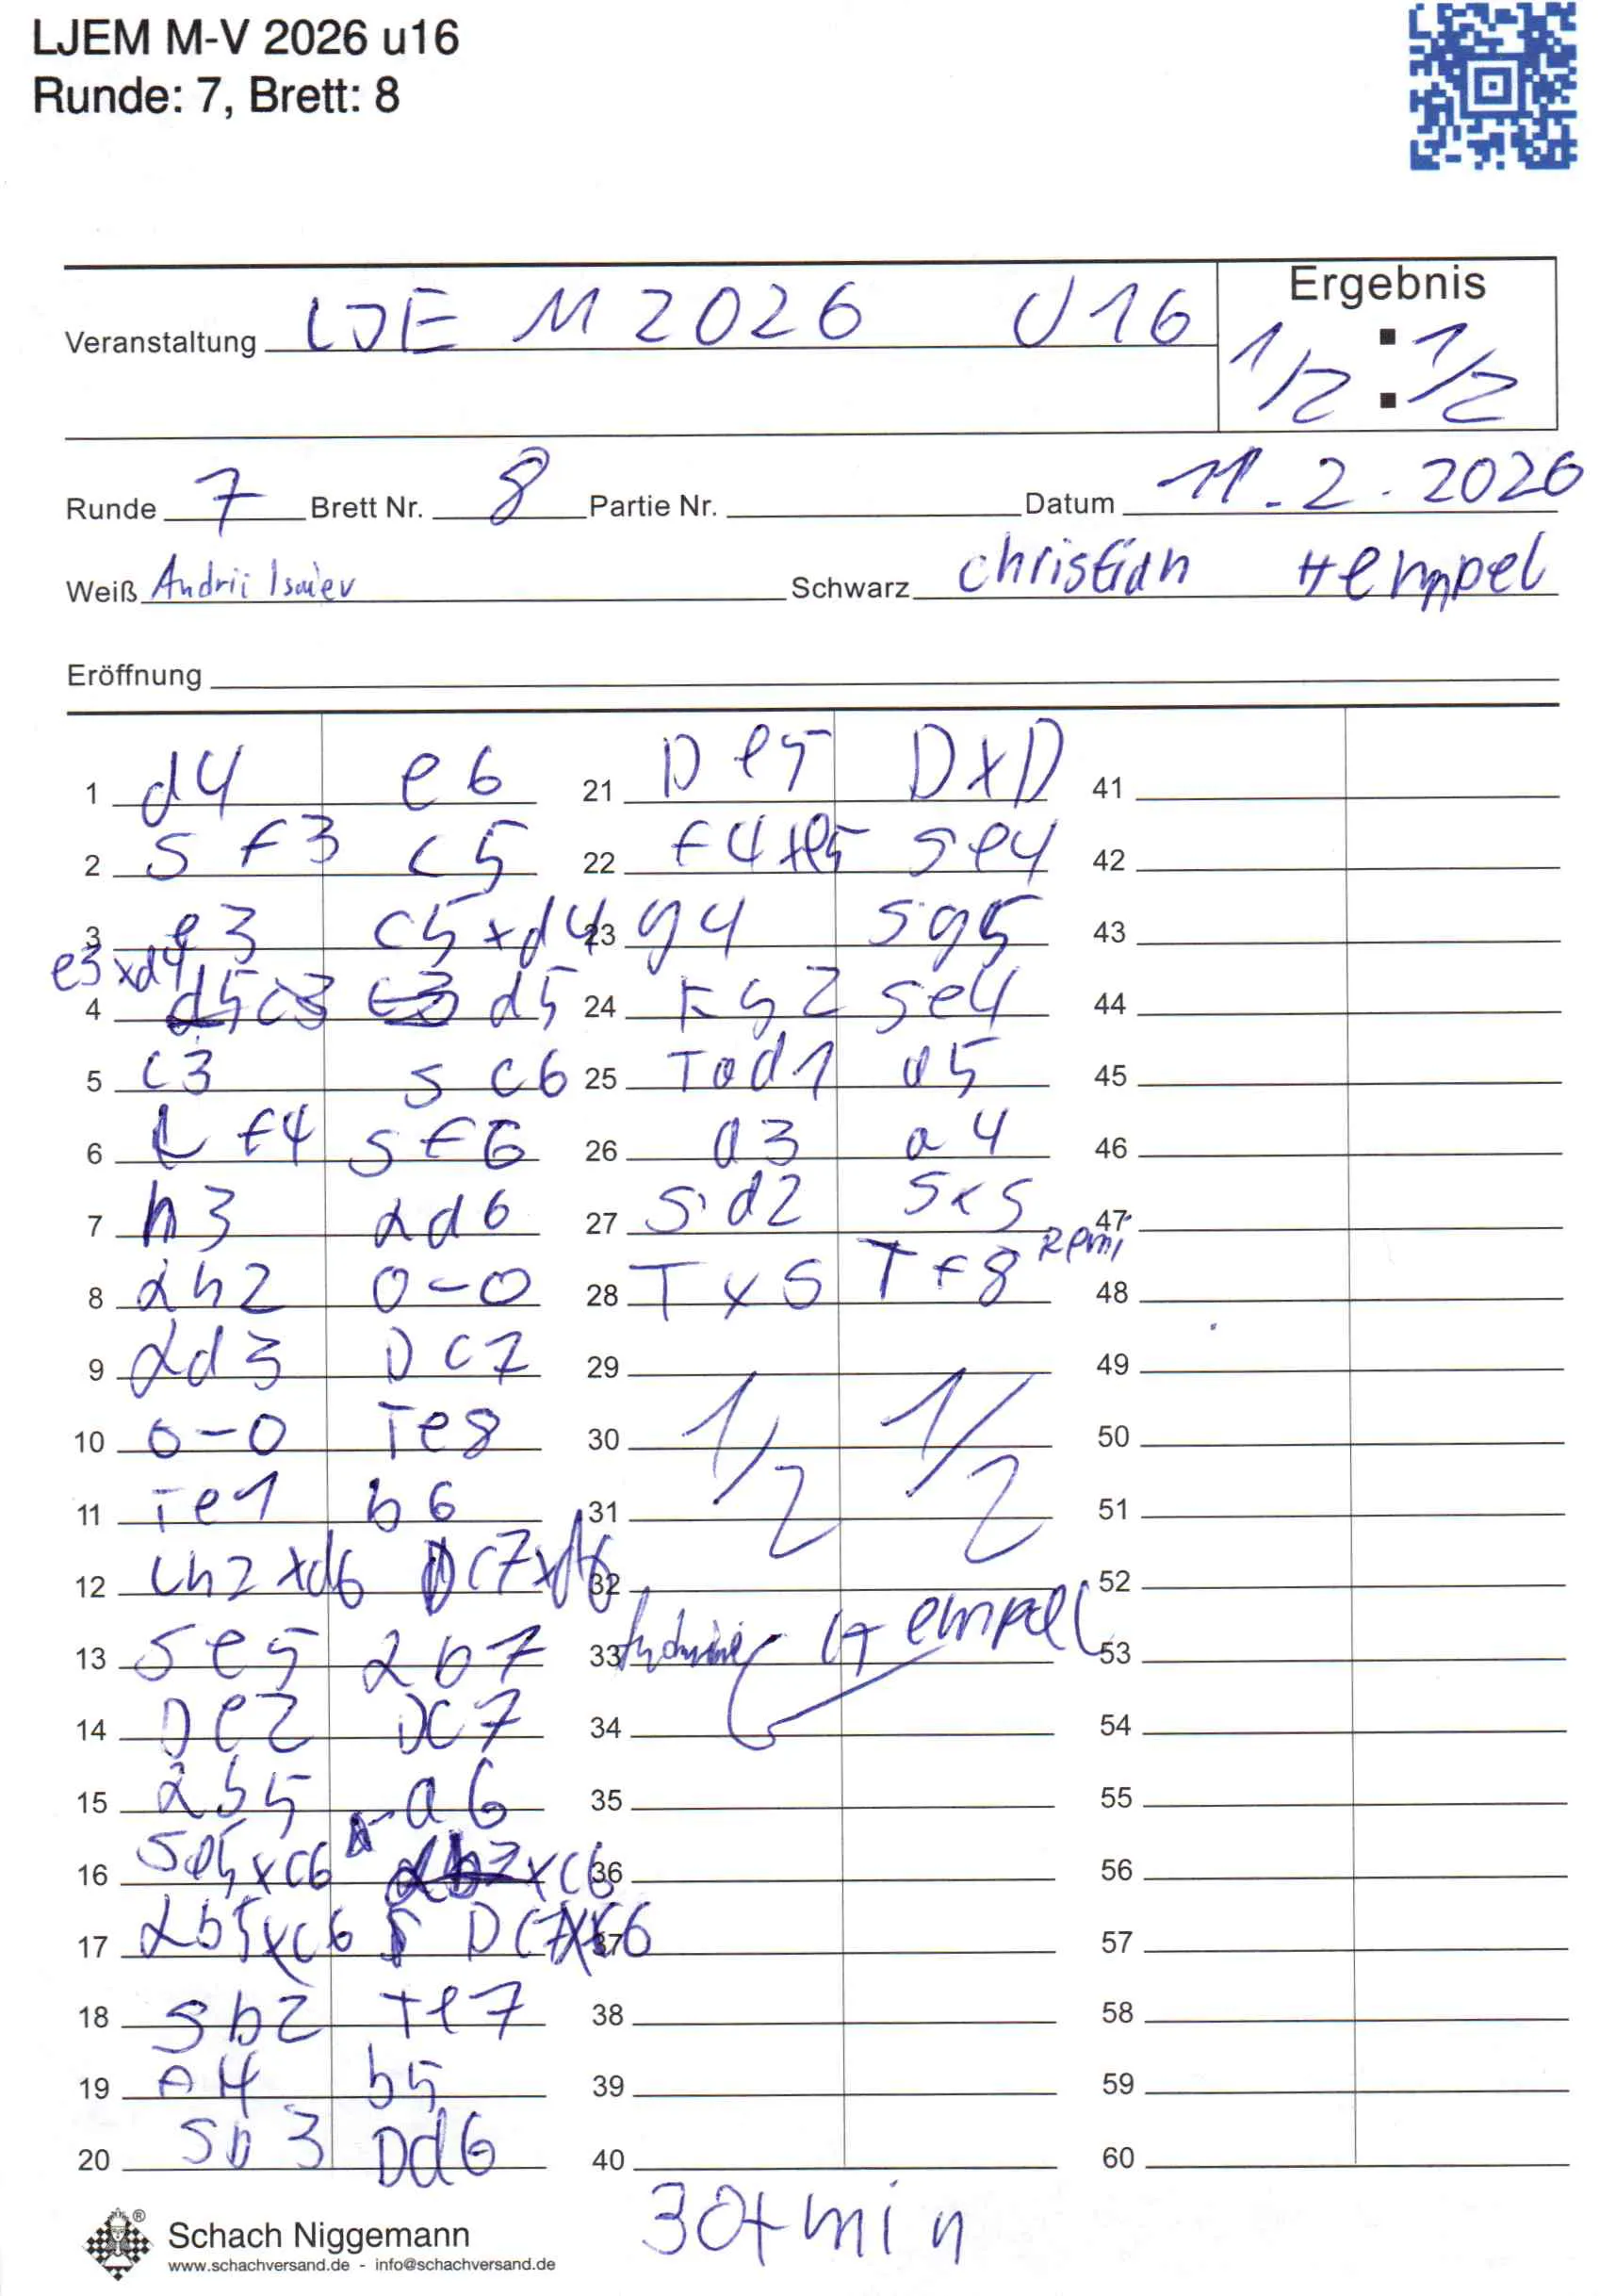 LJEM M-V 2026 u16
Runde: 7, Brett: 8
Veranstaltung LJE M 2026 U16
Ergebnis
1/2 : 1/2
Runde 7 Brett Nr. 8 Partie Nr. Datum 11.2.2026
Weiß Andrii Isaiev Schwarz Christian Hempel
Eröffnung
1 d4 e6
2 Sf3 c5
3 e3 c5xd4
4 e3xd4 d5
5 c3 Sc6
6 Lf4 Sf6
7 h3 Ld6
8 Lh2 0-0
9 Ld3 Dc7
10 0-0 Te8
11 Te1 b6
12 Lh2xd6 Dc7xd6
13 Se5 Lb7
14 De2 Dc7
15 Lb5 a6
16 Se5xc6 Lb7xc6
17 Lb5xc6 Dc7xc6
18 Sb2 Te7
19 f4 b5
20 Sb3 Dd6
21 De5 DxD
22 f4xe5 Se4
23 g4 Sg5
24 Kg2 Se4
25 Tad1 a5
26 a3 a4
27 Sd2 SxS
28 TxS Tf8 Remi
29
30 1/2 1/2
31
32
33 Hempel
34
35
36
37
38
39
40
41
42
43
44
45
46
47
48
49
50
51
52
53
54
55
56
57
58
59
60
30+min
Schach Niggemann
www.schachversand.de - info@schachversand.de